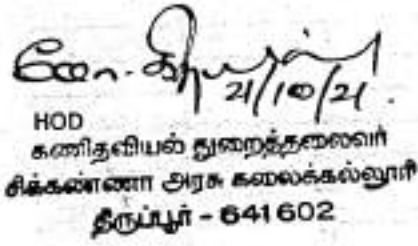 21/10/21
HOD
கணிதவியல் துறைத்தலைவர்
சிக்கண்ணா அரசு கலைக்கல்லூரி
திருப்பூர் - 641602